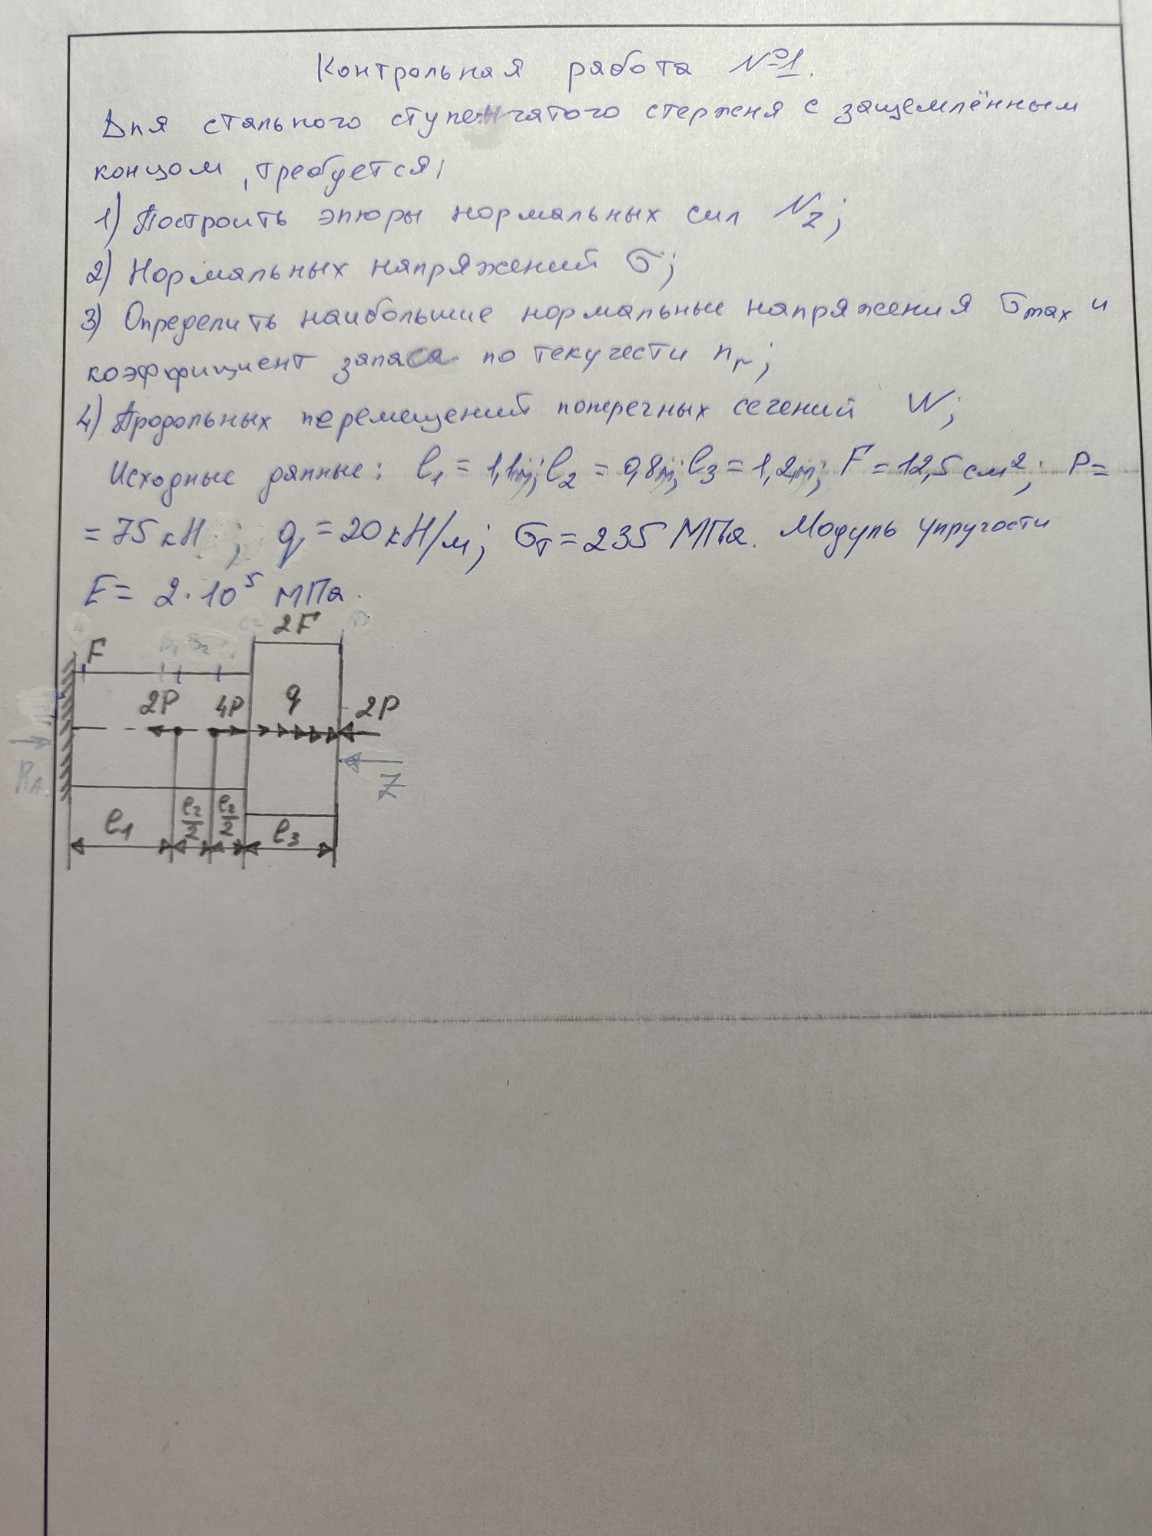 Контрольная работа №1.
Для стального ступенчатого стержня с защемлённым
концом, требуется:
1) Построить эпюры нормальных сил Nz;
2) Нормальных напряжений σ;
3) Определить наибольшие нормальные напряжения σmax и
коэффициент запаса по текучести nт;
4) Продольных перемещений поперечных сечений W;
Исходные данные: l1 = 1,1м; l2 = 0,8м; l3 = 1,2м; F = 12,5 см²; P =
= 75 кН; q = 20 кН/м; σт = 235 МПа. Модуль упругости
E = 2·10⁵ МПа.
2F
F
2P 4P q 2P
RA Z
l1 l2/2 l2/2 l3